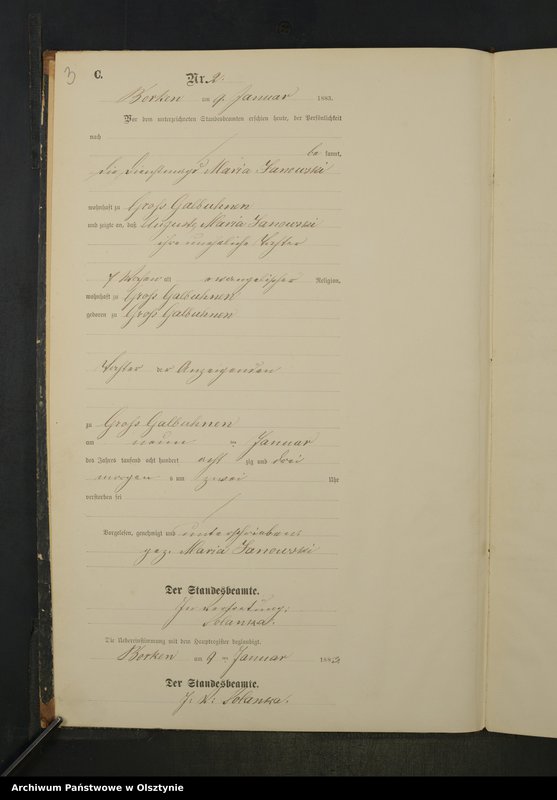 3
C.
Nr. 2.
Borken am 9. Januar 1883.
Vor dem unterzeichneten Standesbeamten erschien heute, der Persönlichkeit
nach
be kannt,
die Dienstmagd Maria Janowski
wohnhaft zu Groß Galbuhnen
und zeigte an, daß Auguste Maria Janowski
ihre uneheliche Tochter
7 Wochen alt evangelischer Religion,
wohnhaft zu Groß Galbuhnen
geboren zu Groß Galbuhnen
Tochter der Anzeigenden
zu Groß Galbuhnen
am neun ten Januar
des Jahres tausend acht hundert acht zig und drei
morgens um zwei Uhr
verstorben sei
Vorgelesen, genehmigt und unterschrieben.
gez. Maria Janowski
Der Standesbeamte.
In Vertretung:
Solanka.
Die Uebereinstimmung mit dem Hauptregister beglaubigt.
Borken am 9 ten Januar 1883
Der Standesbeamte.
J. V. Solanka.
Archiwum Państwowe w Olsztynie